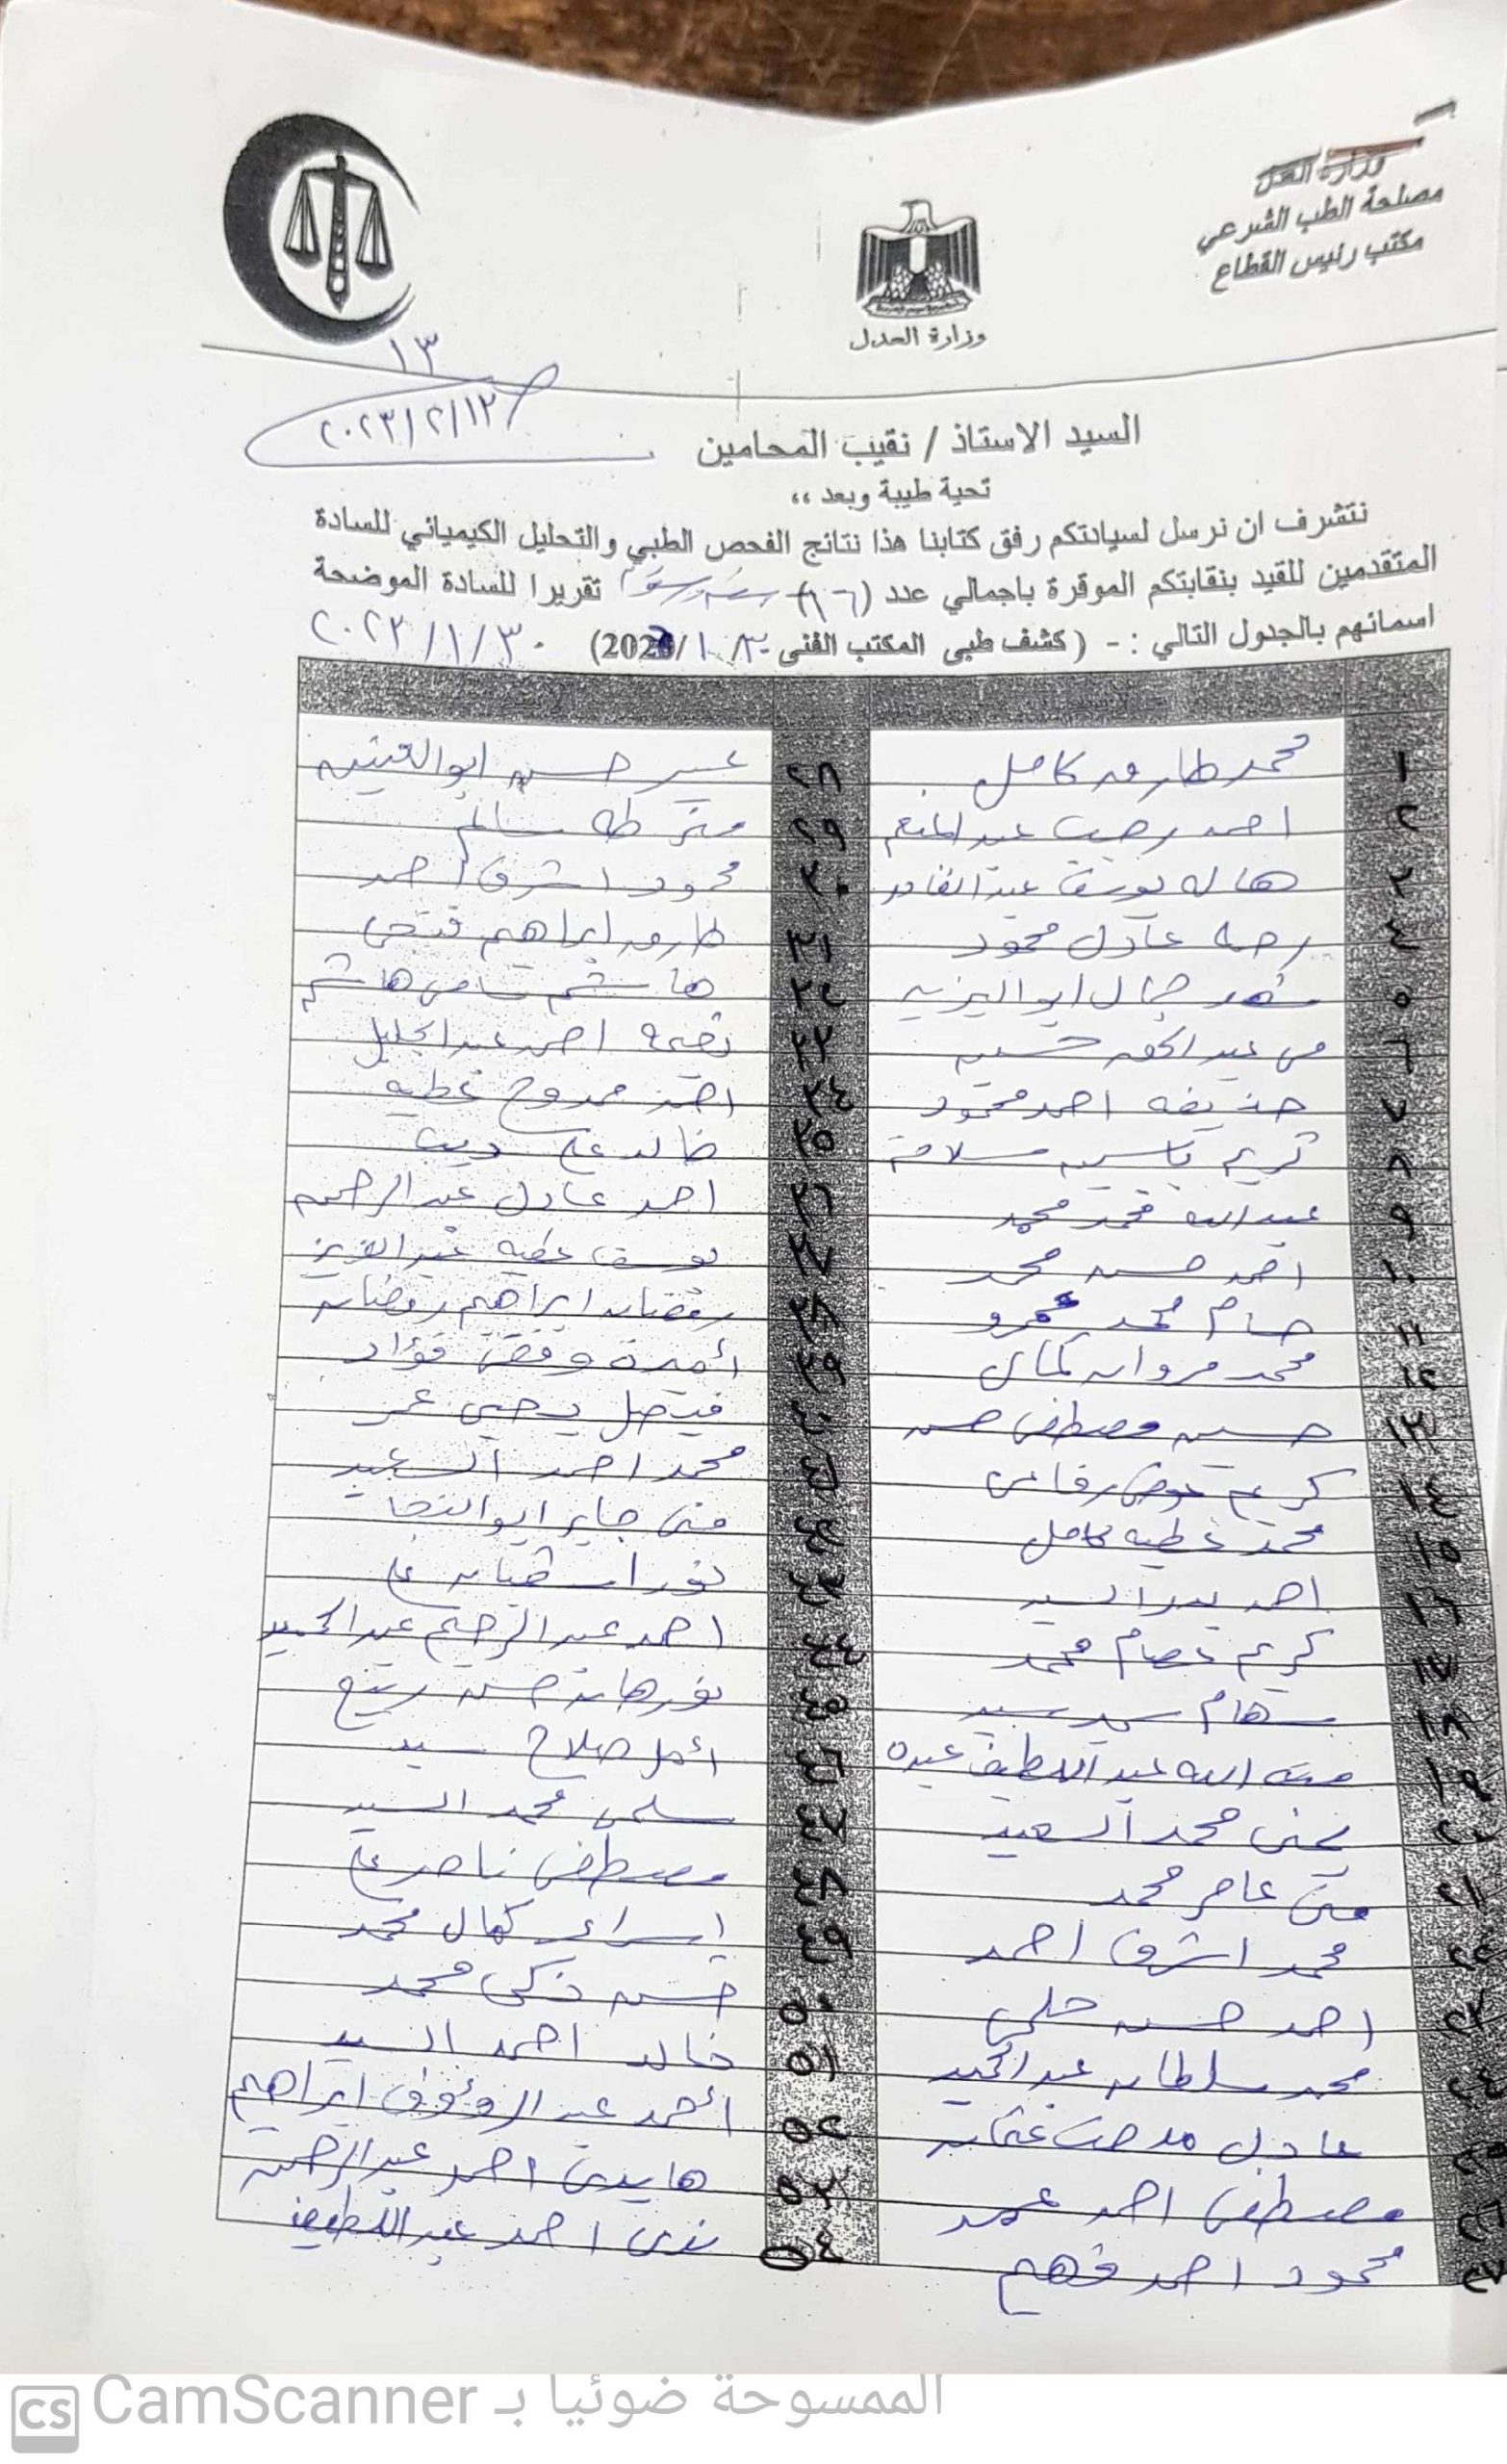 وزارة العدل
مصلحة الطب الشرعي
مكتب رئيس القطاع
وزارة العدل
١٣
٢٠٢٣/٢/١٣
السيد الاستاذ / نقيب المحامين
تحية طيبة وبعد ،،
نتشرف ان نرسل لسيادتكم رفق كتابنا هذا نتائج الفحص الطبي والتحليل الكيميائي للسادة
المتقدمين للقيد بنقابتكم الموقرة باجمالي عدد تقريرا للسادة الموضحة
اسمائهم بالجدول التالي : - ( كشف طبى المكتب الفنى ٣٠/ ١ /2023) ٢٠٢٣/١/٣٠
١ محمد طارق كامل
٢٨ عبير حسن ابوالعنين
٢ احمد رجب عبدالمنعم
٢٩ طه سالم
٣ هاله يوسف عبدالقادر
٣٠ محمود اشرف احمد
٤ رحمه عادل محمود
٣١ طارق ابراهيم فتحى
٥ شهد جمال ابواليزيد
٣٢ هاشم سامى هاشم
٦ مى عبدالحق حسين
٣٣ احمد عبدالجليل
٧ حذيفه احمد محمود
٣٤ احمد ممدوح عطيه
٨ كريم ياسين سلامة
٣٥ خالد على ديب
٩ عبدالله محمد محمد
٣٦ احمد عادل عبدالرحيم
١٠ احمد حسن محمد
٣٧ يوسف عطيه عبدالعزيز
١١ حسام محمد عمرو
٣٨ رمضان ابراهيم رمضان
١٢ محمد مروان كمال
٣٩ أميرة فؤاد
١٣ حسين مصطفى حسن
٤٠ فيصل يحيى عمر
١٤ كريم عوض رفاعى
٤١ محمد احمد السعيد
١٥ محمد عطيه كامل
٤٢ منى جابر ابوالنجا
١٦ احمد بدر السيد
٤٣ على
١٧ كريم عصام محمد
٤٤ احمد عبدالرحيم عبدالحميد
١٨ سهام سيد
٤٥ نورهان حسن ربيع
١٩ منة الله عبداللطيف عبده
٤٦ أمل صلاح سيد
٢٠ يمنى محمد السعيد
٤٧ سلمى محمد السيد
٢١ منى عامر محمد
٤٨ مصطفى ناصر على
٢٢ محمد اشرف احمد
٤٩ إسراء كمال محمد
٢٣ احمد حسن حلمي
٥٠ حسن زكى محمد
٢٤ محمد سلطان عبدالحميد
٥١ خالد احمد السيد
٢٥ عادل مدحت عثمان
٥٢ أحمد عبدالرؤوف ابراهيم
٢٦ مصطفى احمد
٥٣ هايدى احمد عبدالرحمن
٢٧ محمود احمد فهيم
٥٤ ندى احمد عبداللطيف
CS CamScanner الممسوحة ضوئيا بـ